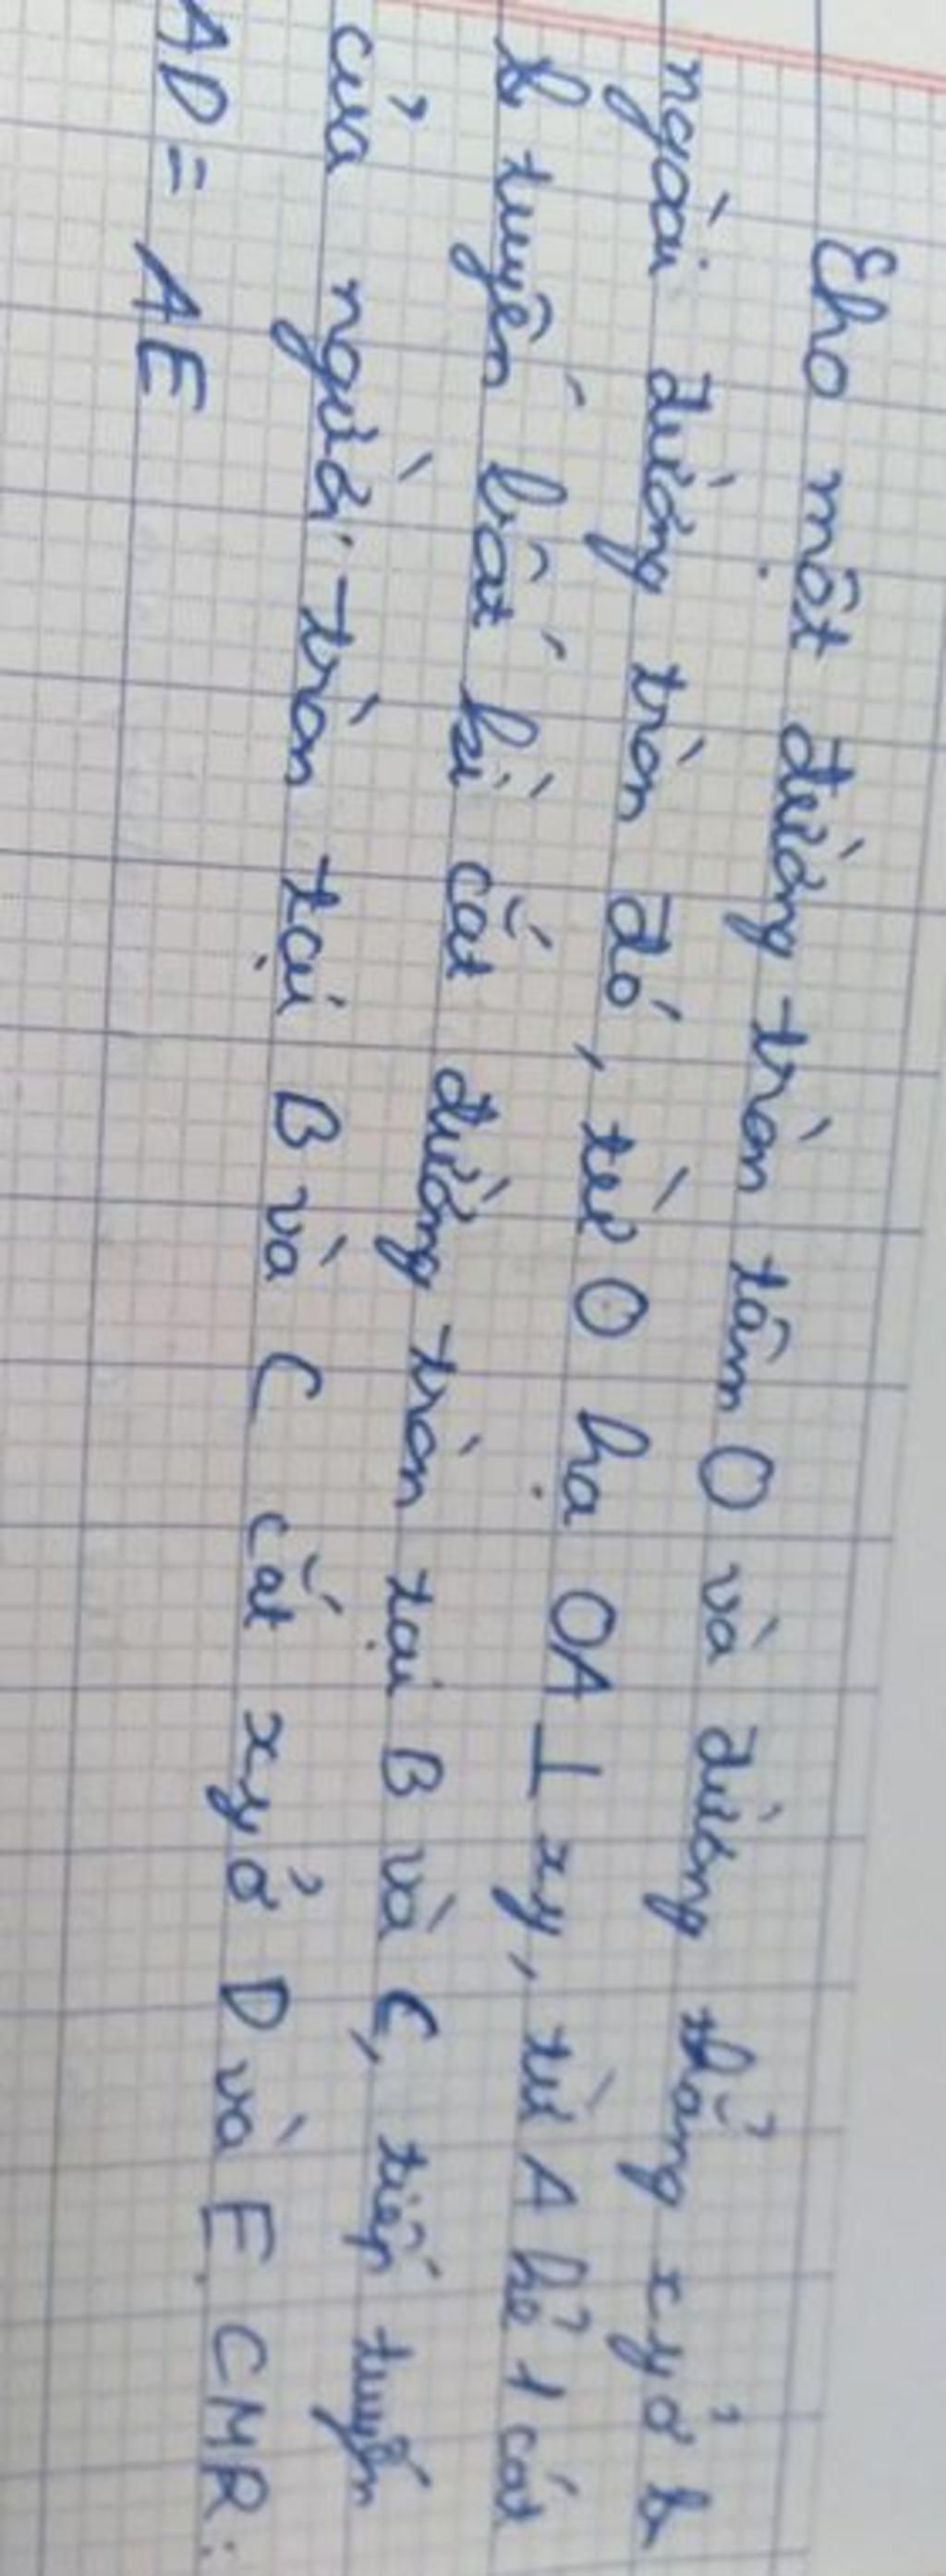 Cho một đường tròn tâm O và đường thẳng xy ở b
ngoài đường tròn đó, từ O hạ OA ⊥ xy, từ A kẻ 1 cát
b tuyến bất kì cắt đường tròn tại B và C, tiếp tuyến
của người tròn tại B và C cắt xy ở D và E. CMR:
AD = AE